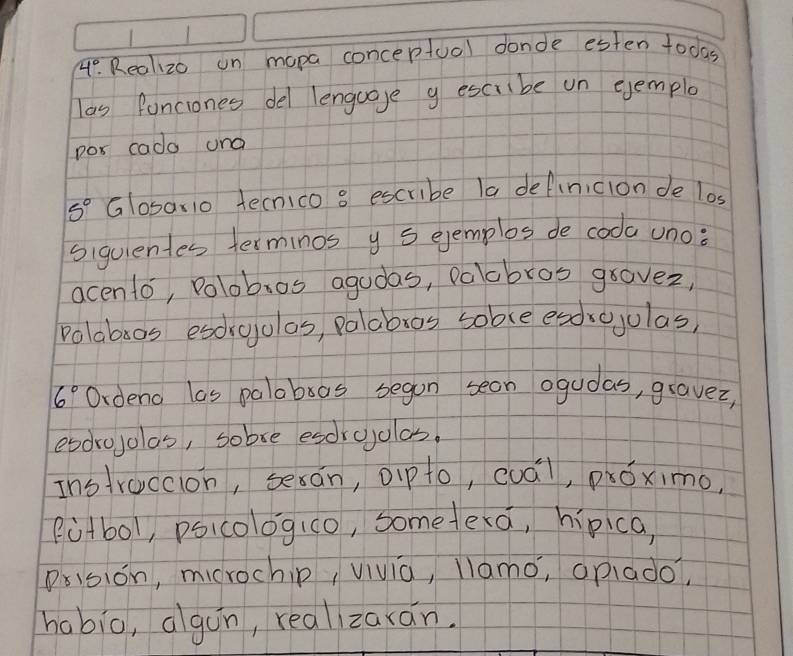 4º. Realizo un mapa conceptual donde esten todas
las funciones del lenguaje y escribe un ejemplo
por cada una
5º Glosario tecnico: escribe la definicion de los
siguientes terminos y 5 ejemplos de cada uno:
acentó, Palabras agudas, palabras gravez,
Palabras esdrujulas, palabras sobre esdrujulas,
6º Ordena las palabras segun sean agudas, gravez,
esdrujulas, sobre esdrujulas.
Instrucción, serán, cuál, próximo,
fútbol, psicológico, someterá, hípica,
prisión, microchip, vivía, llamó, apiadó,
había, algún, realizarán.